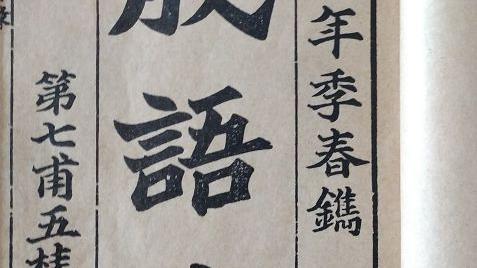 年季春鐫
語
第七甫五桂